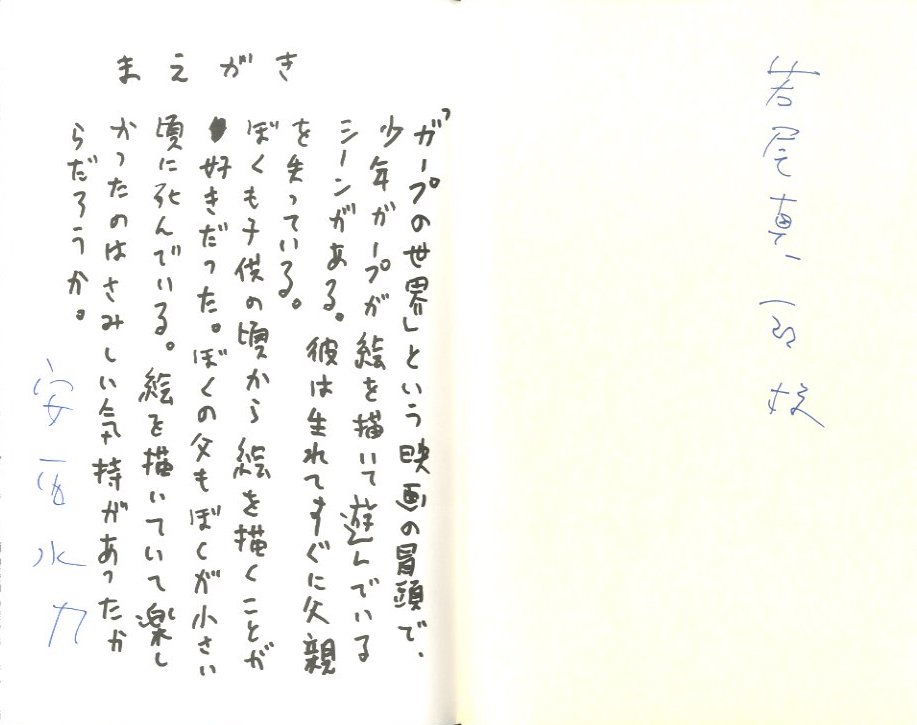 若尾真一郎様
まえがき
「ガープの世界」という映画の冒頭で、
少年ガープが絵を描いて遊んでいる
シーンがある。彼は生れてすぐに父親
を失っている。
ぼくも子供の頃から絵を描くことが
好きだった。ぼくの父もぼくが小さい
頃に死んでいる。絵を描いていて楽し
かったのはさみしい気持があったか
らだろうか。
安西水丸